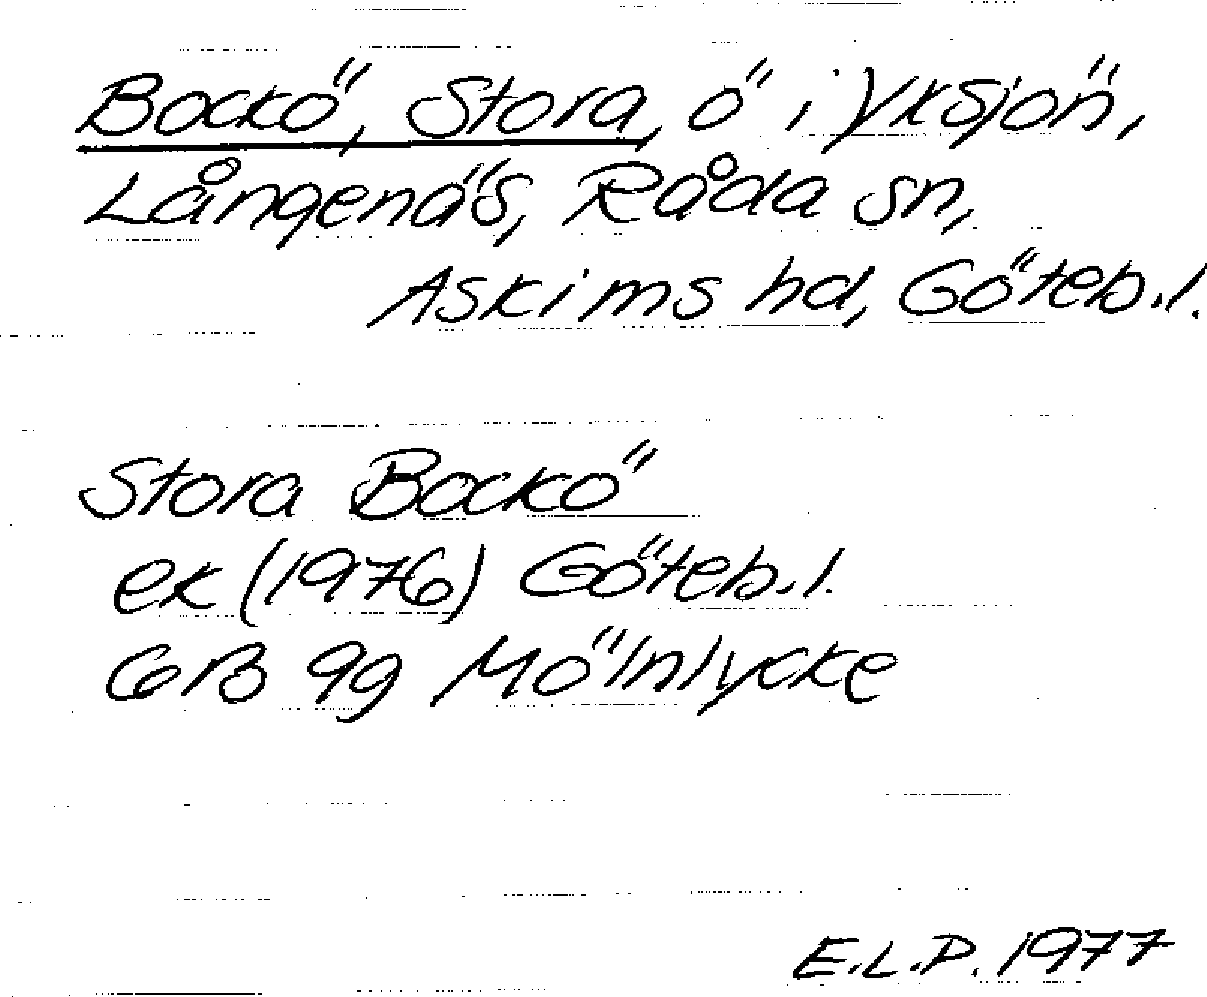 Bockö, Stora, ö i Yxsjön,
Långenäs, Råda sn,
Askims hd, Göteb.l.
Stora Bockö
ek (1976) Göteb.l.
GB 9g Mölnlycke
E.L.P. 1977